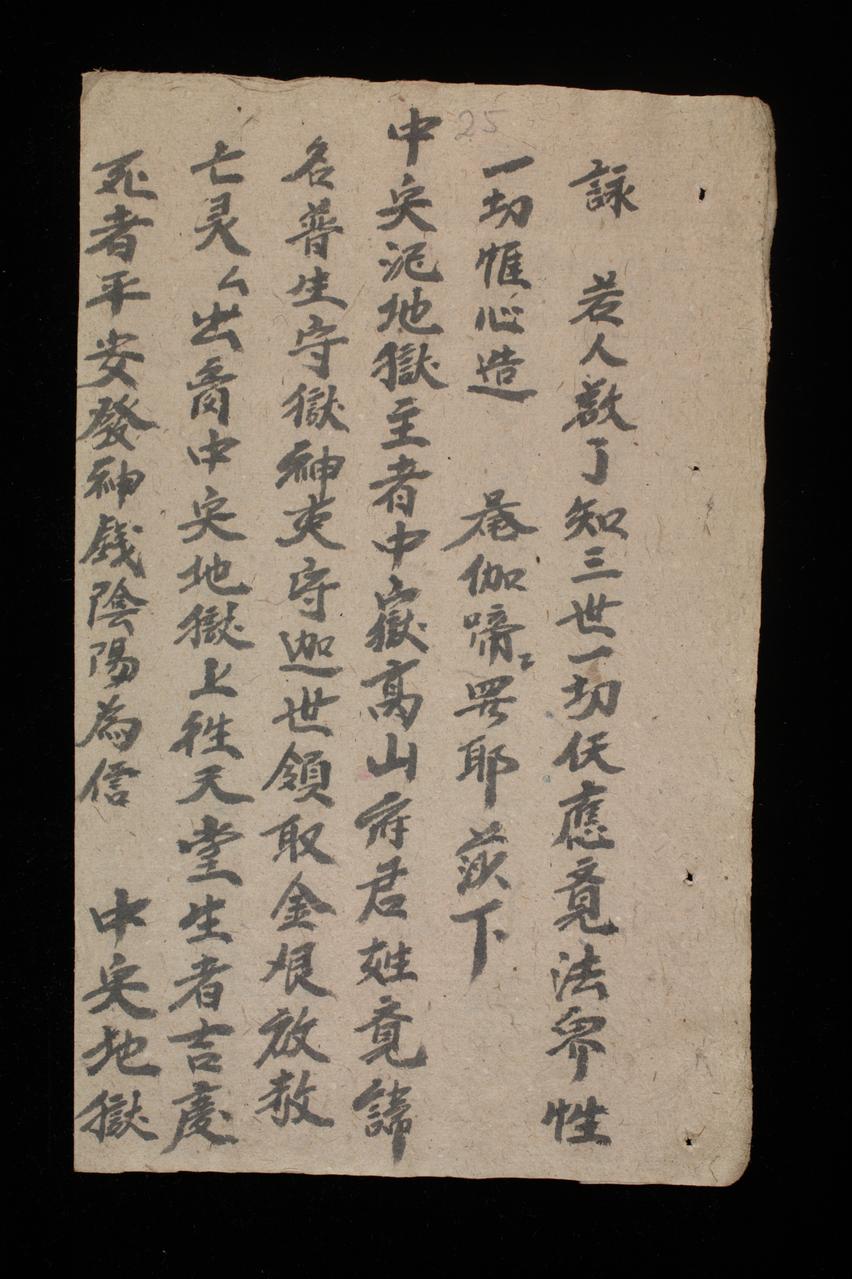 詠 若人欲了知三世一切仸應覔法界性
一切惟心造 菴伽啼〻娑耶 茨下
25
中央泥地獄主者中嶽高山府君姓竟諱
名普生守獄神吏守迦世領取金艮放赦
亡灵𠆢出离中央地獄上徃天堂生者吉慶
死者平安發神錢陰陽為信 中央地獄